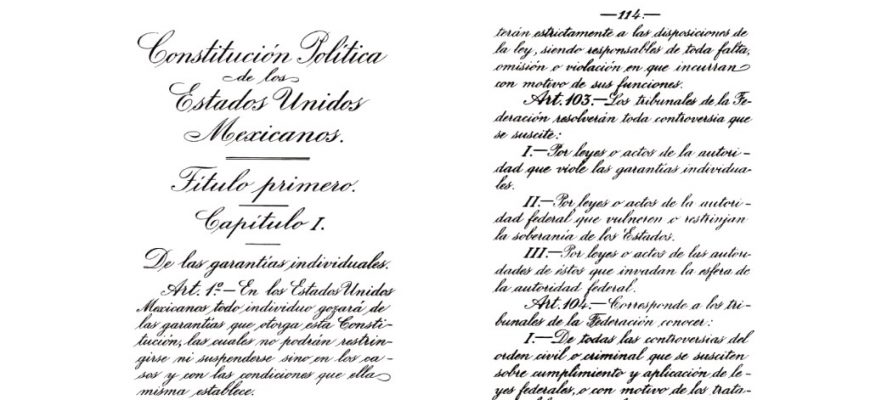 Constitución Política
de los
Estados Unidos
Mexicanos.
Título primero.
Capítulo I.
De las garantías individuales.
Art. 1º.—En los Estados Unidos
Mexicanos todo individuo gozará de
las garantías que otorga esta Consti-
tución, las cuales no podrán restrin-
girse ni suspenderse sino en los ca-
sos y con las condiciones que ella
misma establece.
—114.—
terán estrictamente a las disposiciones de
la ley, siendo responsables de toda falta,
omisión o violación en que incurran
con motivo de sus funciones.
Art. 103.—Los tribunales de la Fe-
deración resolverán toda controversia que
se suscite:
I.—Por leyes o actos de la autori-
dad que viole las garantías individua-
les.
II.—Por leyes o actos de la autori-
dad federal que vulneren o restrinjan
la soberanía de los Estados.
III.—Por leyes o actos de las autori-
dades de éstos que invadan la esfera de
la autoridad federal.
Art. 104.—Corresponde a los tri-
bunales de la Federación conocer:
I.—De todas las controversias del
orden civil o criminal que se susciten
sobre cumplimiento y aplicación de le-
yes federales, o con motivo de los trata-